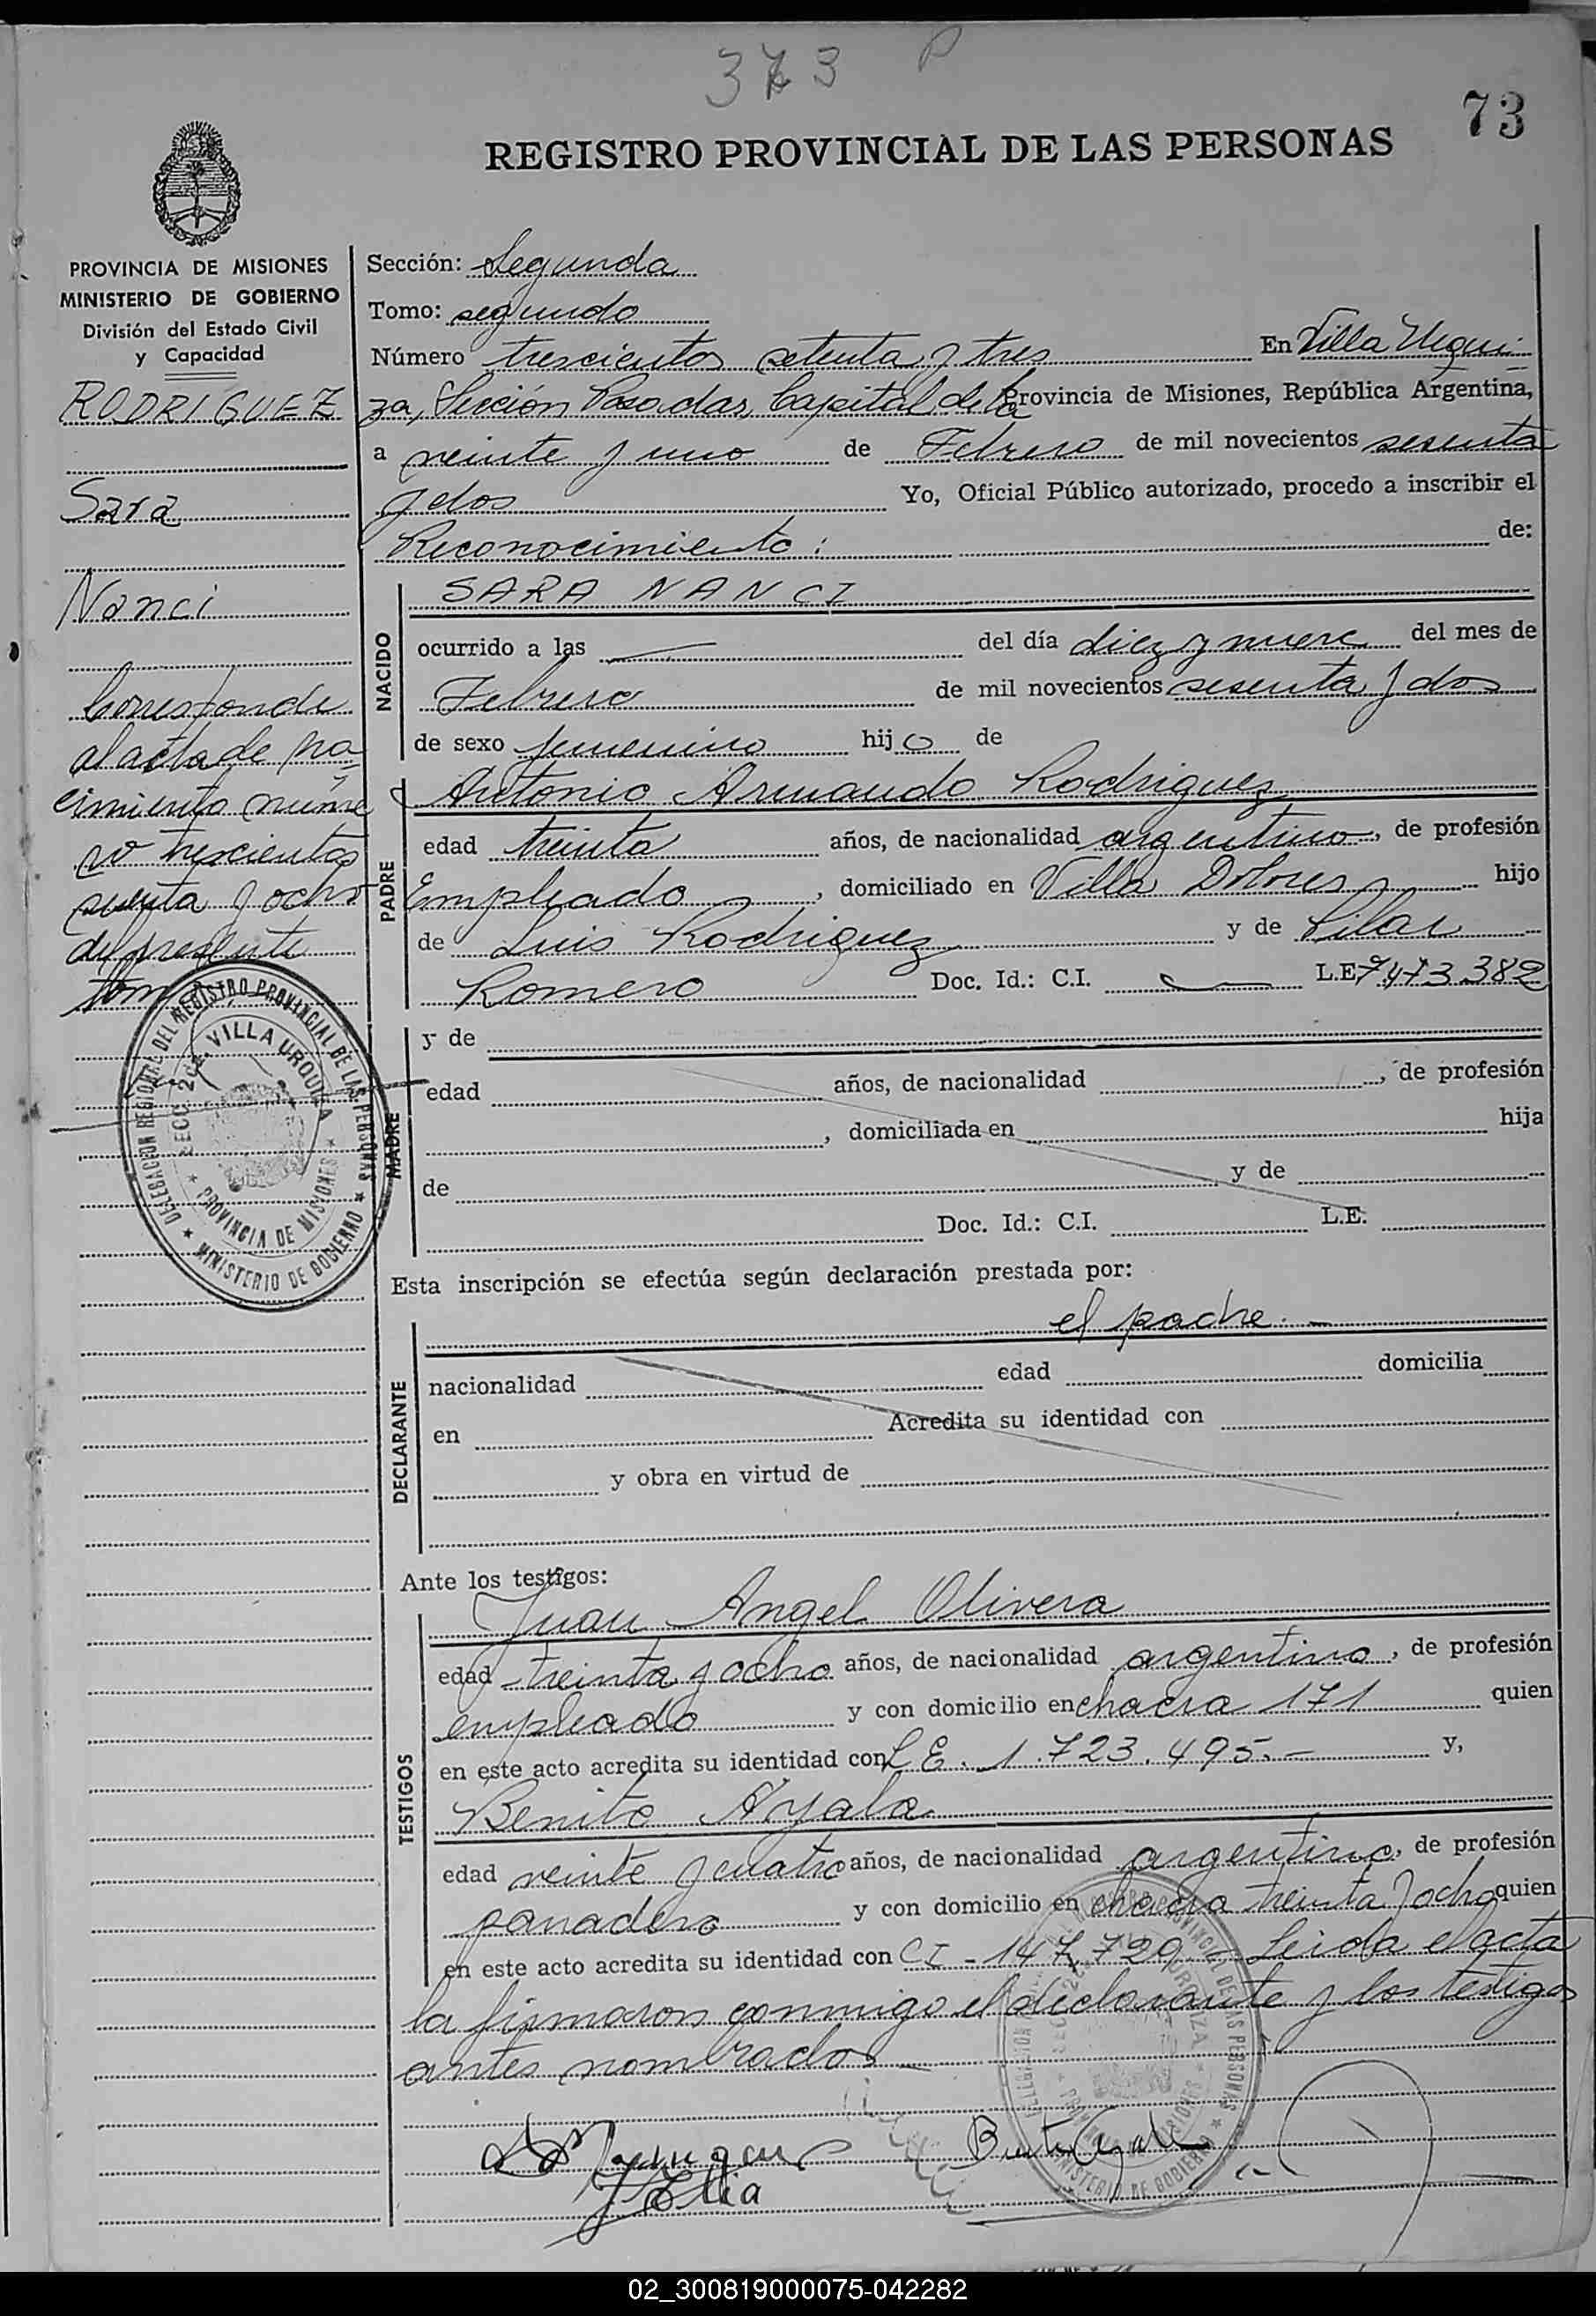 373 P
73
REGISTRO PROVINCIAL DE LAS PERSONAS
PROVINCIA DE MISIONES
MINISTERIO DE GOBIERNO
División del Estado Civil
y Capacidad
RODRIGUEZ
Sara
Nanci
Corresponde
al acta de na
cimiento núme
ro trescientos
y ocho
del presente
tomo
DELEGACION REGIONAL DEL REGISTRO PROVINCIAL DE LAS PERSONAS
SECC. 2da. VILLA URQUIZA
PROVINCIA DE MISIONES
MINISTERIO DE GOBIERNO
Sección: Segunda
Tomo: segundo
Número trescientos setenta y tres En Villa Urqui
za, Sección Posadas, Capital de la Provincia de Misiones, República Argentina,
a veinte y uno de Febrero de mil novecientos sesenta
y dos Yo, Oficial Público autorizado, procedo a inscribir el
Reconocimiento: de:
NACIDO
SARA NANCI
ocurrido a las — del día diez y nueve del mes de
Febrero de mil novecientos sesenta y dos
de sexo femenino hijo de
PADRE
Antonio Armando Rodriguez
edad treinta años, de nacionalidad argentino, de profesión
Empleado, domiciliado en Villa Dolores hijo
de Luis Rodriguez y de Pilar
Romero Doc. Id.: C.I. — L.E. 7.473.382
MADRE
y de
edad años, de nacionalidad , de profesión
, domiciliada en hija
de y de
Doc. Id.: C.I. L.E.
Esta inscripción se efectúa según declaración prestada por:
el padre. —
DECLARANTE
nacionalidad edad domicilia
en Acredita su identidad con
y obra en virtud de
Ante los testigos:
TESTIGOS
Juan Angel Olivera
edad treinta y ocho años, de nacionalidad argentino, de profesión
empleado y con domicilio en chacra 171 quien
en este acto acredita su identidad con L E. 1.723.495. — y,
Benito Ayala
edad veinte y cuatro años, de nacionalidad argentino, de profesión
panadero y con domicilio en chacra treinta y ocho quien
en este acto acredita su identidad con CI - 147.729 - Leida el acta
la firmaron conmigo el declarante y los testigos
antes nombrados
Benito Ayala
02_300819000075-042282